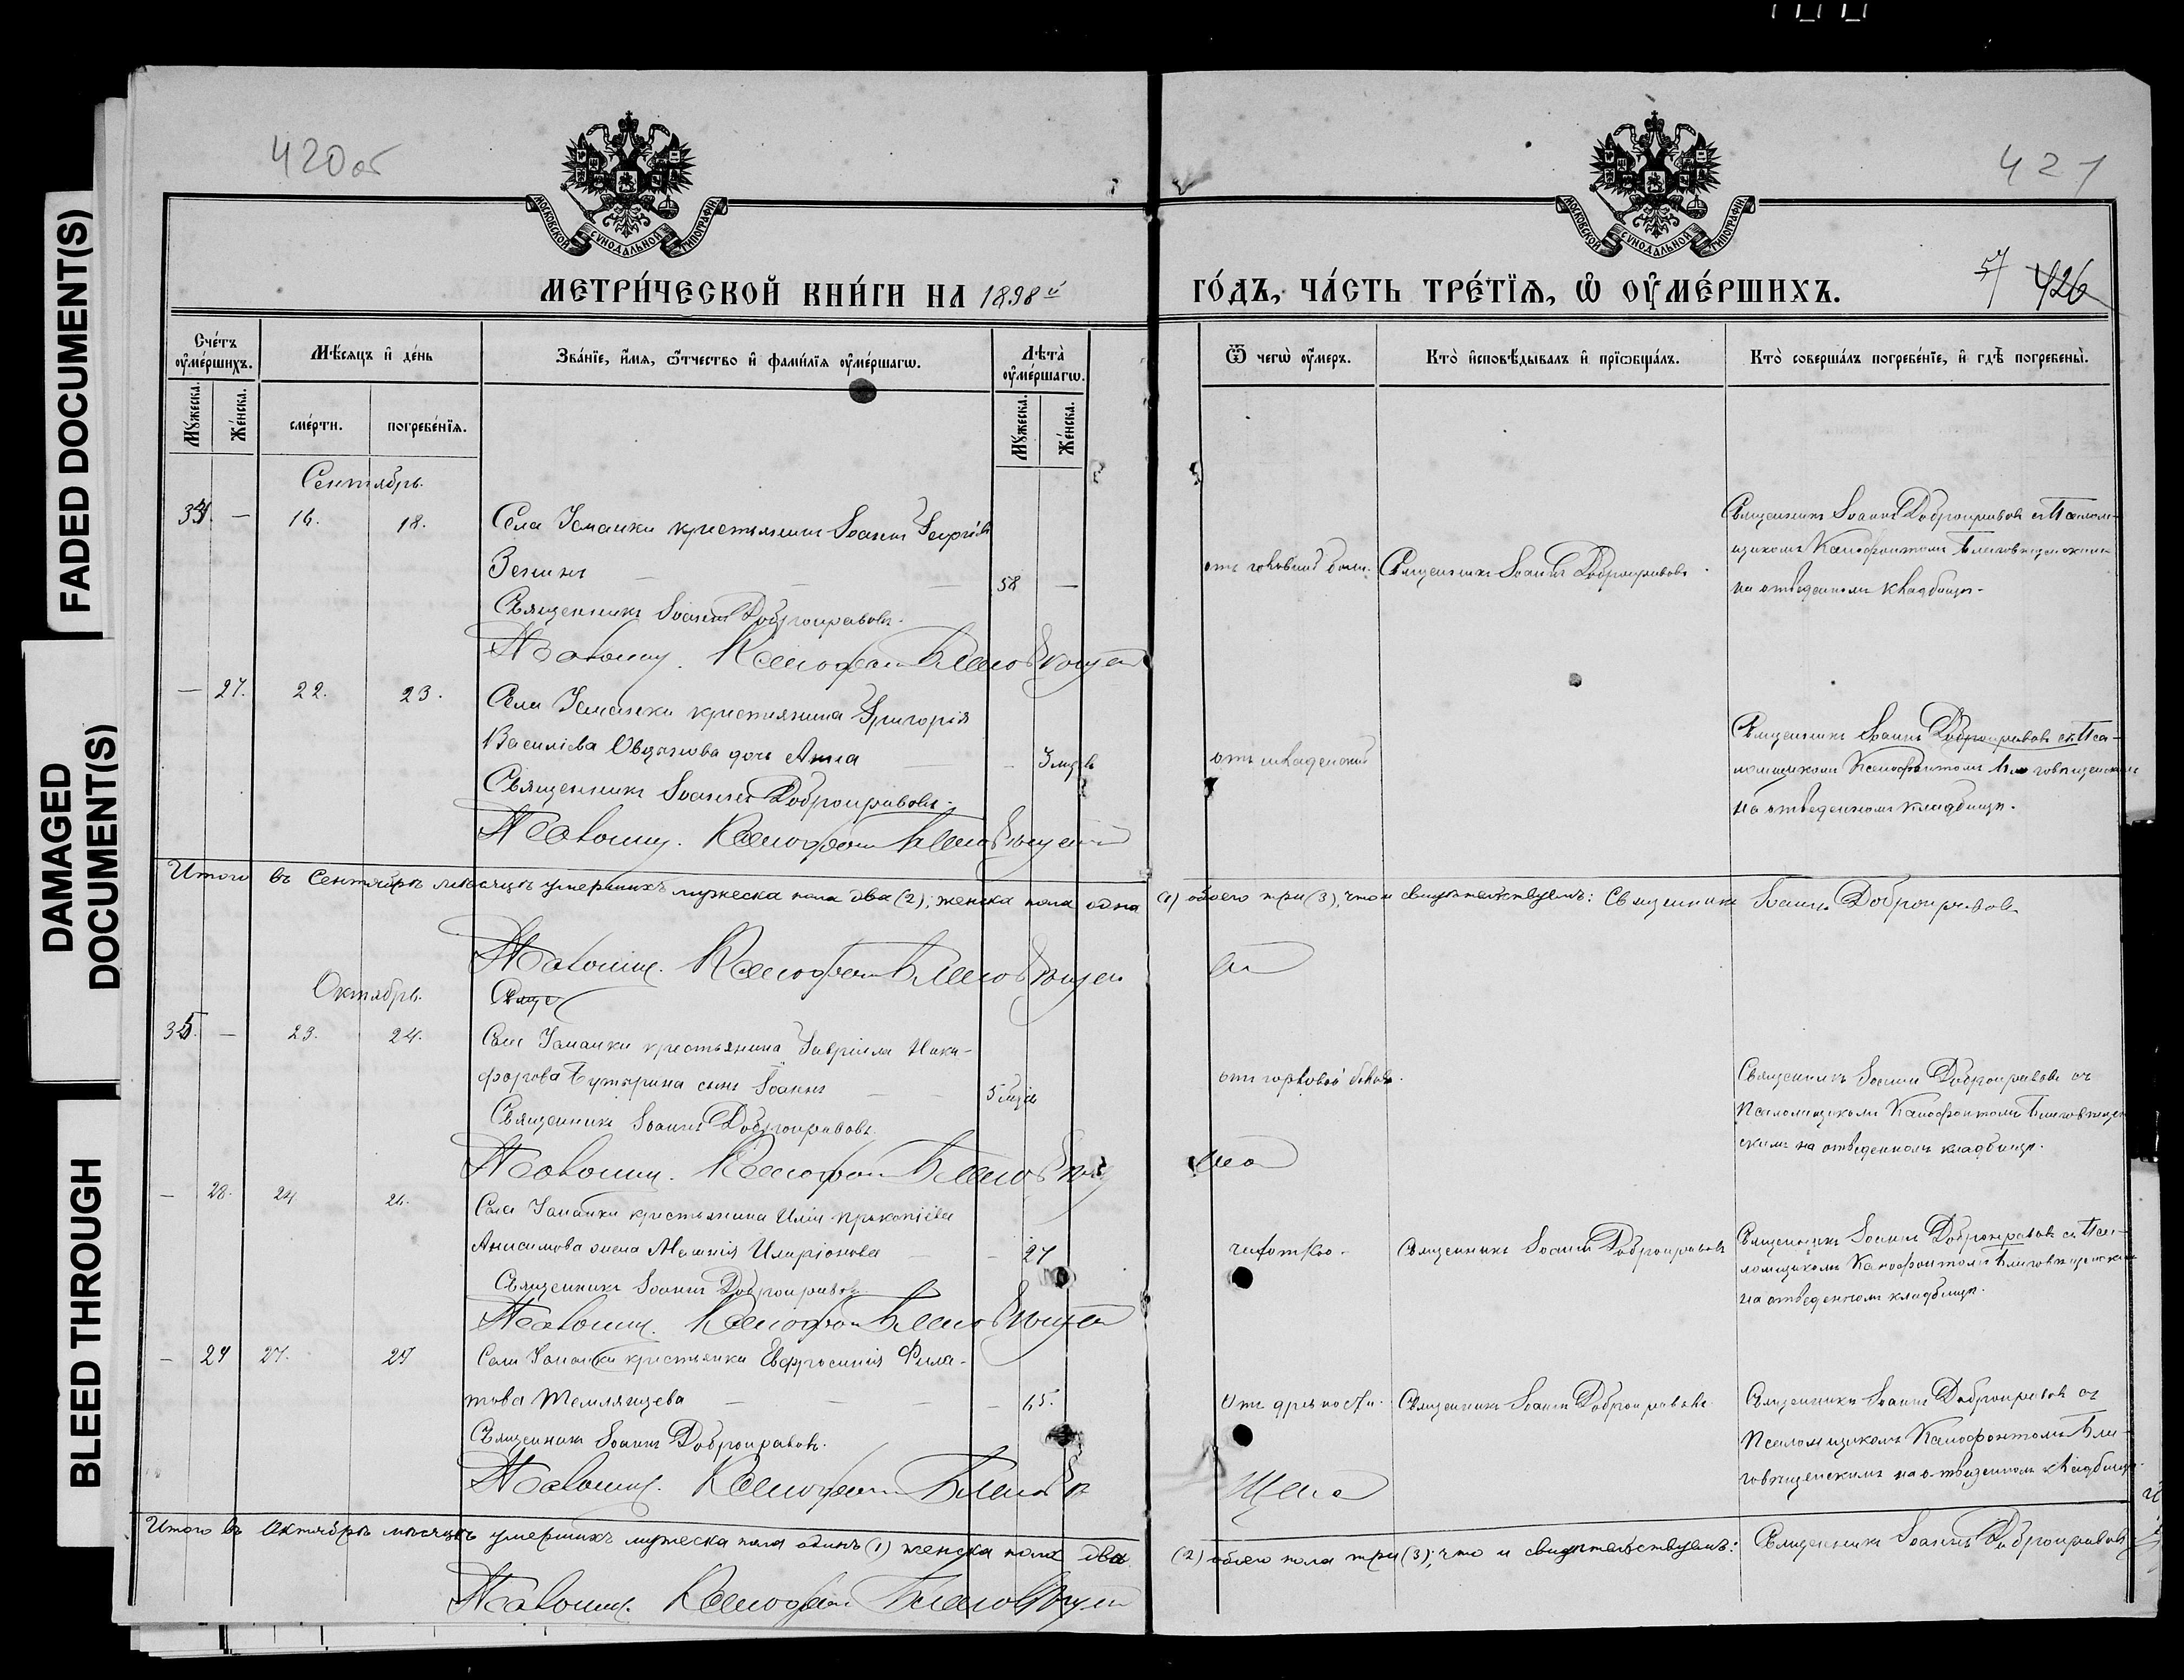 FADED DOCUMENT(S)
DAMAGED
DOCUMENT(S)
BLEED THROUGH
420об
МОСКОВСКОЙ СУНОДАЛЬНОЙ ТИПОГРАФІИ
МЕТРИ́ЧЕСКОЙ КНИ́ГИ НА 1898й
Сче́тъ
оуме́ршихъ.
Мѣ́сяцъ и де́нь
Зва́нїе, и́мя, ѻ҆́тчество и фами́лїя оумéршагѡ.
Лѣта̀
оумéршагѡ.
Мꙋ́жеска.
Же́нска.
сме́рти.
погребе́нїя.
Мꙋ́жеска.
Же́нска.
Сентябрь.
34. — 16. 18. Села Усманки крестьянинъ Іоаннъ Георгіевъ
Зенинъ — — — 58 —
Священникъ Іоаннъ Добронравовъ.
Псаломщ. Ксенофонтъ Благовѣщен
— 27. 22. 23. Села Усманки крестьянина Григорія
Василіева Овдякова дочь Анна — — 3 мцвъ
Священникъ Іоаннъ Добронравовъ.
Псаломщ. Ксенофонтъ Благовѣщенскій
Итого въ Сентябрѣ мѣсяцѣ умершихъ мужеска пола два (2); женска пола одна
Псаломщ. Ксенофонтъ Благовѣщен
Октябрь.
Свяще
35. — 23. 24. Села Усманки крестьянина Гавріила Ники-
форова Бутырина сынъ Іоаннъ — — 5 мцев
Священникъ Іоаннъ Добронравовъ.
Псаломщ. Ксенофонтъ Благовѣщ
— 28. 24. 26. Села Усманки крестьянина Иліи Прокопіева
Анисимова жена Меланія Иларіонова — 27
Священникъ Іоаннъ Добронравовъ.
Псаломщ. Ксенофонтъ Благовѣщен
— 29 27. 29 Села Усманки крестьянка Евфросинія Фила-
това — — — 65.
Священникъ Іоаннъ Добронравовъ.
Псаломщ. Ксенофонтъ Благовѣ
Итого въ Октябрѣ мѣсяцѣ умершихъ мужеска пола одинъ (1) женска пола два
Псаломщ. Ксенофонтъ Благовѣщен
421
МОСКОВСКОЙ СУНОДАЛЬНОЙ ТИПОГРАФІИ
57 426
ГО́ДЪ, ЧА́СТЬ ТРЕ́ТЇЯ, Ѡ ОУМЕ́РШИХЪ.
Ѿ чегѡ̀ оу́меръ.
Кто̀ исповѣ́дывалъ и прїѡбща́лъ.
Кто̀ соверша́лъ погребе́нїе, и гдѣ̀ погребены̀.
Священникъ Іоаннъ Добронравовъ съ Псалом-
щикомъ Ксенофонтомъ Благовѣщенскимъ
на отведенномъ кладбищѣ.
отъ головной боли. Священникъ Іоаннъ Добронравовъ
Священникъ Іоаннъ Добронравовъ съ Пса-
ломщикомъ Ксенофонтомъ Благовѣщенскимъ
на отведенномъ кладбищѣ.
отъ младенской
(1) обоего три (3), что и свидѣтельствуемъ: Священникъ Іоаннъ Добронравовъ
Священникъ Іоаннъ Добронравовъ съ
Псаломщикомъ Ксенофонтомъ Благовѣщен
скимъ на отведенномъ кладбищѣ.
отъ горловой болѣ.
чахоткою. Священникъ Іоаннъ Добронравовъ
Священникъ Іоаннъ Добронравовъ съ Пса-
ломщикомъ Ксенофонтомъ Благовѣщенскимъ
на отведенномъ кладбищѣ.
Отъ дряхлости. Священникъ Іоаннъ Добронравовъ.
Священникъ Іоаннъ Добронравовъ съ
Псаломщикомъ Ксенофонтомъ Бла-
говѣщенскимъ на отведенномъ кладбищѣ.
(2) обоего пола три (3); что и свидѣтельствуемъ: Священникъ Іоаннъ Добронравовъ